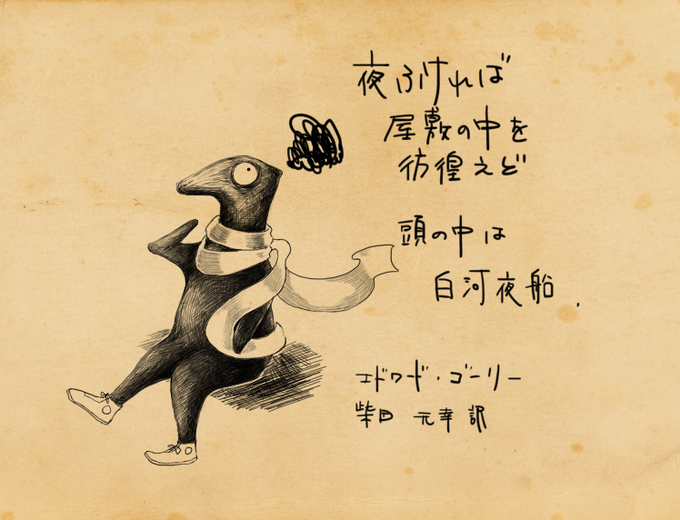 夜ふければ
屋敷の中を
彷徨えど
頭の中は
白河夜船.
エドワード・ゴーリー
柴田 元幸 訳